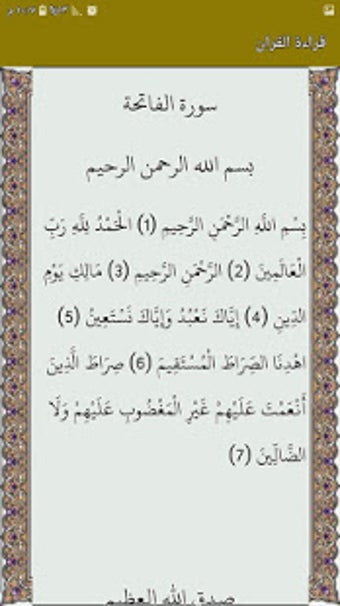 قراءة القران
سورة الفاتحة
بسم الله الرحمن الرحيم
بِسْمِ اللَّهِ الرَّحْمَنِ الرَّحِيمِ (1) الْحَمْدُ لِلَّهِ رَبِّ
الْعَالَمِينَ (2) الرَّحْمَنِ الرَّحِيمِ (3) مَالِكِ يَوْمِ
الدِّينِ (4) إِيَّاكَ نَعْبُدُ وَإِيَّاكَ نَسْتَعِينُ (5)
اهْدِنَا الصِّرَاطَ الْمُسْتَقِيمَ (6) صِرَاطَ الَّذِينَ
أَنْعَمْتَ عَلَيْهِمْ غَيْرِ الْمَغْضُوبِ عَلَيْهِمْ وَلَا
الضَّالِّينَ (7)
صدق الله العظيم